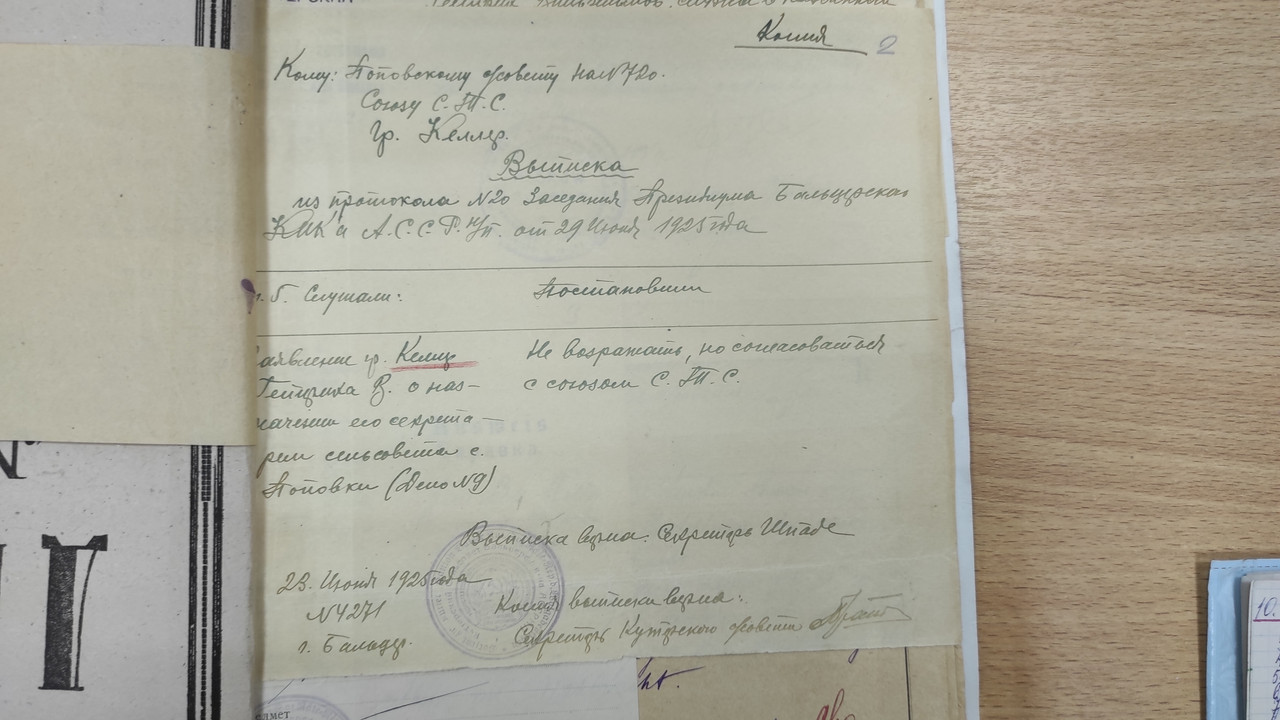 Копия 2
Кому: Поповскому с/совету на №720.
Союзу С.Т.С.
Гр. Келлер.
Выписка
из протокола №20 Заседания Президиума Бальцерска
КИК'а А.С.С.Р.Н/П. от 29 Июня 1925 года
Слушали: Постановили
аявление гр. Келлер Не возражать, но согласоваться
Гейнриха В. о наз- с союзом С.Т.С.
начении его секрета-
рем сельсовета с.
Поповки (Дело №9)
Выписка верна. Секретарь Шпаде
23. Июня 1925 года
№4271 Копия выписки верна:
г. Бальцер. Секретарь Куттерского с/совета